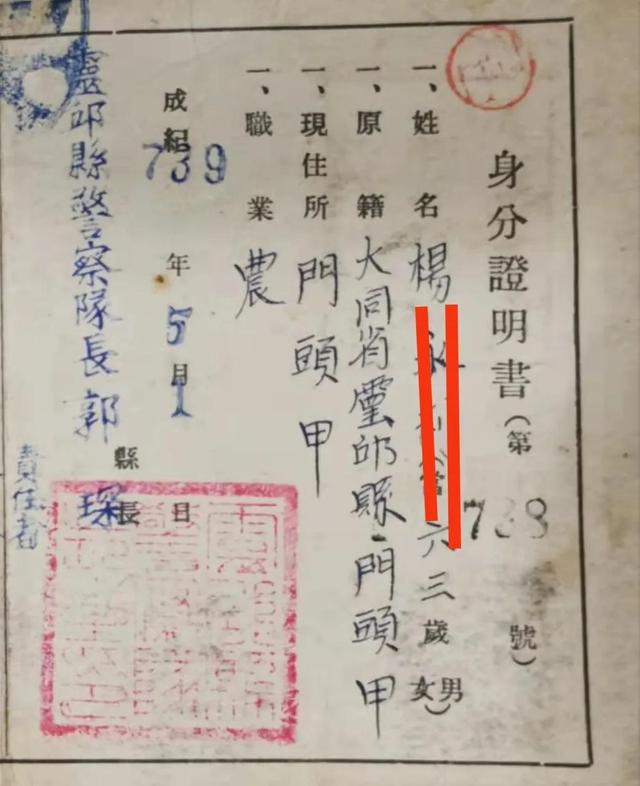 身分證明書（第738號）
一、姓名 楊永（當六三歲 男女）
一、原籍 大同省靈邱縣門頭甲
一、現住所 門頭甲
一、職業 農
成紀739年5月1日
縣長
靈邱縣警察隊長郭琛
責任者